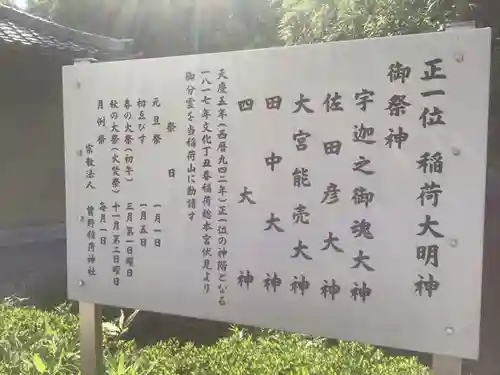 正一位 稲荷大明神
御祭神
宇迦之御魂大神
佐田彦大神
大宮能売大神
田中大神
四大神
天慶五年(西暦九四二年)正一位の神階となる
一八一七年文化丁丑春稲荷総本宮伏見より
御分霊を当稲荷山に勧請す
祭日
元旦祭 一月一日
初ゑびす 一月五日
春の大祭(初午) 三月第一日曜日
秋の大祭(火焚祭) 十一月第二日曜日
月例祭 毎月一日
宗教法人 稲荷神社